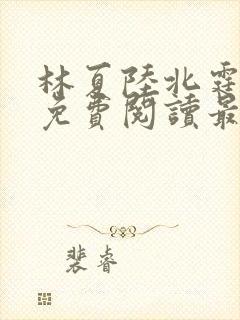 林夏陸北霆
免費閱讀最
裴睿